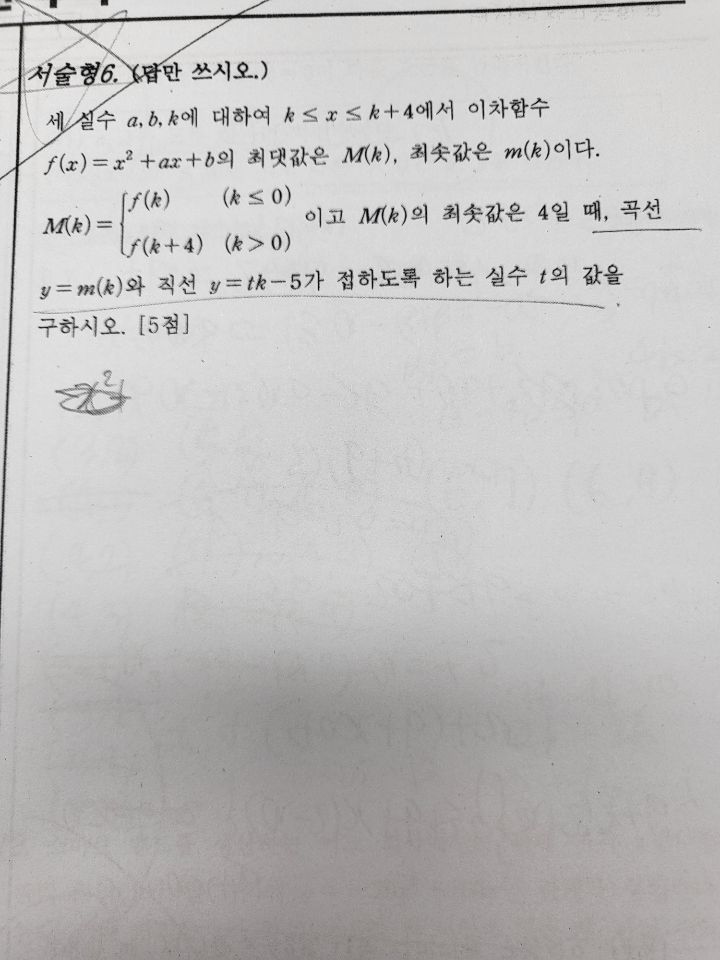 서술형6. (답만 쓰시오.)
세 실수 a, b, k에 대하여 k ≤ x ≤ k+4에서 이차함수
f(x) = x² + ax + b의 최댓값은 M(k), 최솟값은 m(k)이다.
M(k) = { f(k) (k ≤ 0)
f(k+4) (k > 0) 이고 M(k)의 최솟값은 4일 때, 곡선
y = m(k)와 직선 y = tk - 5가 접하도록 하는 실수 t의 값을
구하시오. [5점]